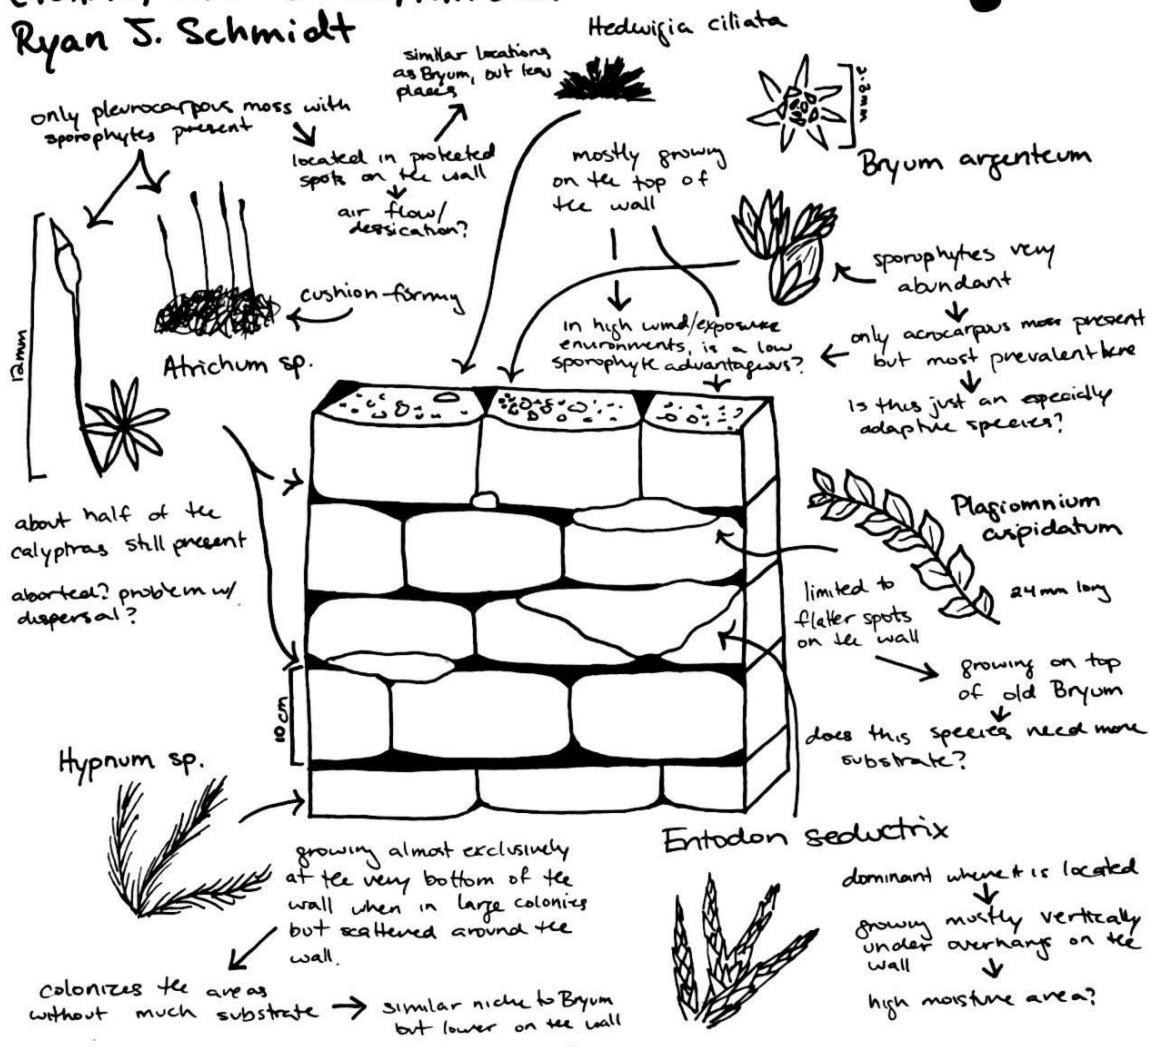 Ryan J. Schmidt
Hedwigia ciliata
similar locations
as Bryum, but less
places
only pleurocarpous moss with
sporophytes present
located in protected
spots on the wall
air flow/
dessication?
mostly growing
on the top of
the wall
2.8mm
Bryum argenteum
sporophytes very
abundant
only acrocarpous moss present
but most prevalent here
Is this just an especially
adaptive species?
in high wind/exposure
environments, is a low
sporophyte advantageous?
cushion-forming
12mm
Atrichum sp.
about half of the
calyptras still present
aborted? problem w/
dispersal?
Plagiomnium
cuspidatum
24mm long
limited to
flatter spots
on the wall
growing on top
of old Bryum
does this species need more
substrate?
10cm
Hypnum sp.
growing almost exclusively
at the very bottom of the
wall when in large colonies
but scattered around the
wall.
colonizes the areas
without much substrate
similar niche to Bryum
but lower on the wall
Entodon seductrix
dominant where it is located
growing mostly vertically
under overhangs on the
wall
high moisture area?